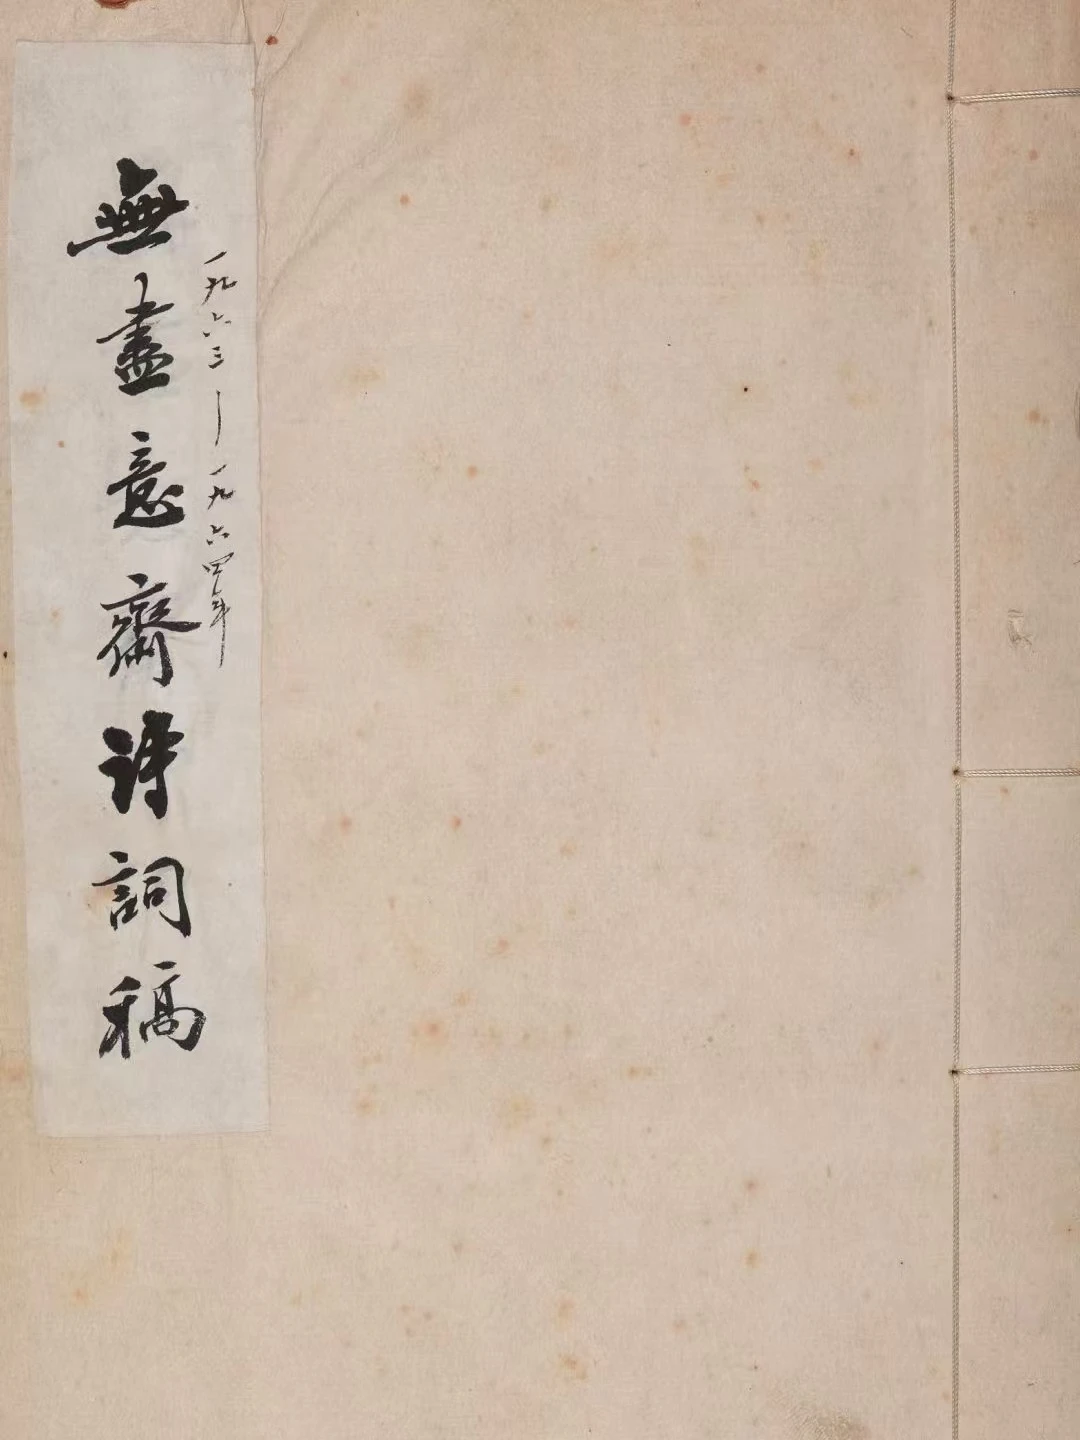 無盡意齋詩詞稿
一九六三—一九六四年